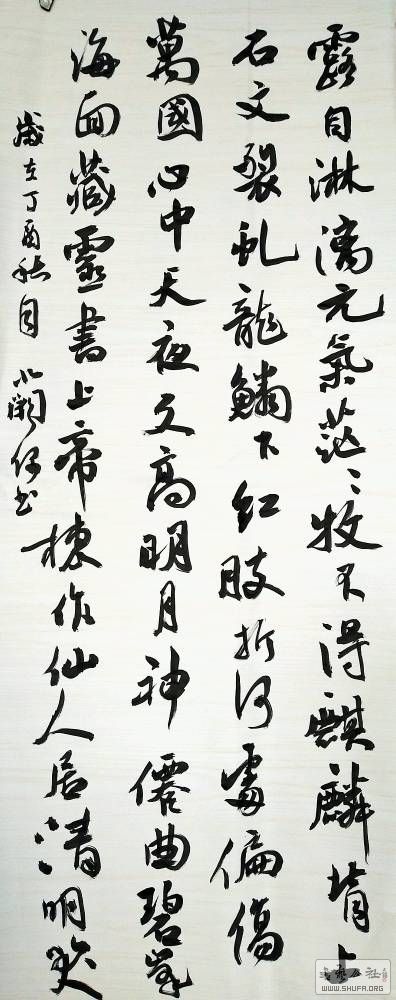 露目淋漓元氣茫〻收不得麒麟背上
石文裂虬龍鱗下紅肢折何處偏傷
萬國心中天夜久高明月神僊曲碧峯
海面藏靈書上帝揀作仙人居清明笑
歲在丁酉秋月 書
WWW.SHUFA.ORG